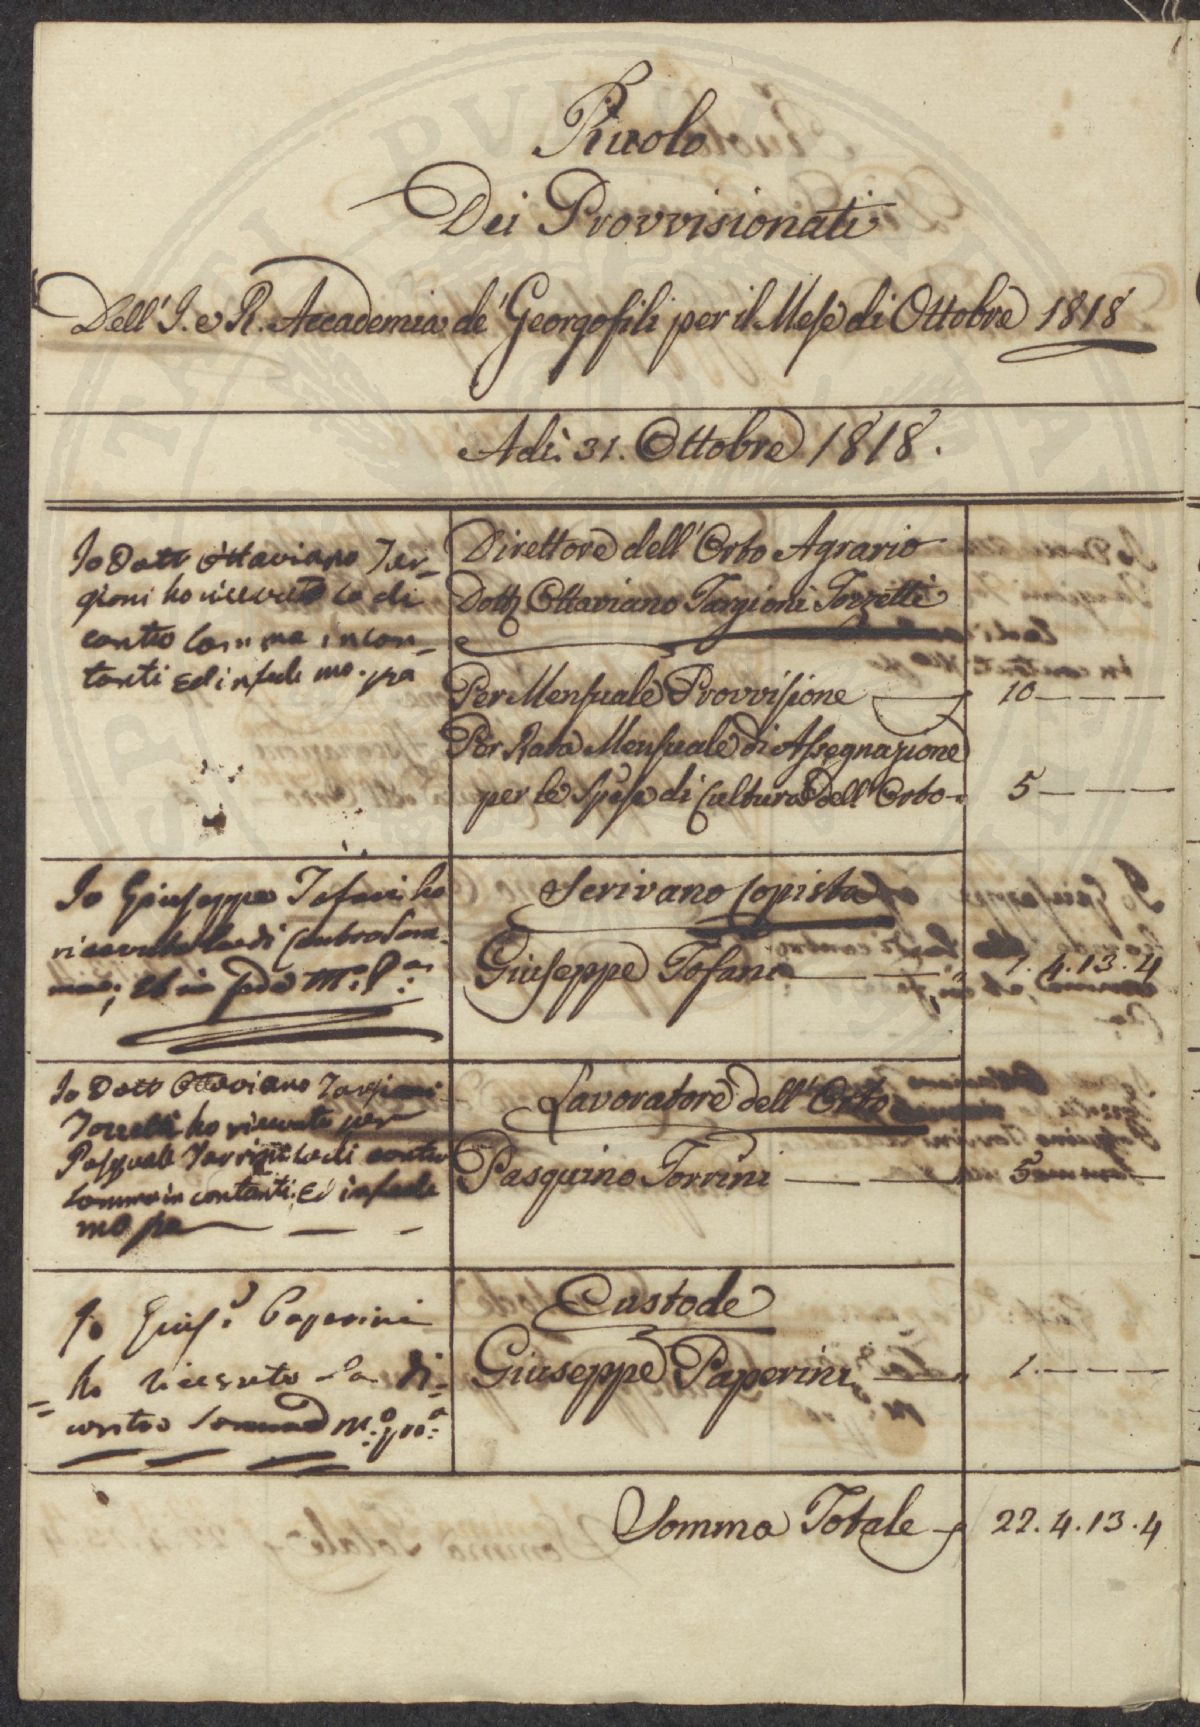 Ruolo
Dei Provvisionati
Dell' I. e R. Accademia de' Georgofili per il Mese di Ottobre 1818
Adi: 31. Ottobre 1818.
Io Dott Ottaviano Tar-
gioni ho ricevuto la di
contro somma in con-
tanti Ed in fede mo. pa
Direttore dell' Orto Agrario
Dott Ottaviano Targioni Tozzetti
Per Mensuale Provvisione 10 — — —
Per Rata Mensuale di Assegnazione
per le Spese di Cultura Dell' Orto 5 — — —
Io Giuseppe Tofani ho
ricevuto la di Contro Som-
ma; et in fede Mo. Pa:
Scrivano Copista
Giuseppe Tofani — — 1. 4. 13. 4
Io Dott Ottaviano Targioni
Tozzetti ho ricevuto per
Pasquale Torrini la di contro
somma in contanti. Ed in fede
mo pa — —
Lavoratore dell' Orto
Pasquino Torrini — — — 5 — — —
Io Gius.e Paperini
ho ricevuto la di-
contro Somma Mo. pra:
Custode
Giuseppe Paperini — 1. — — —
Somma Totale 22. 4. 13. 4